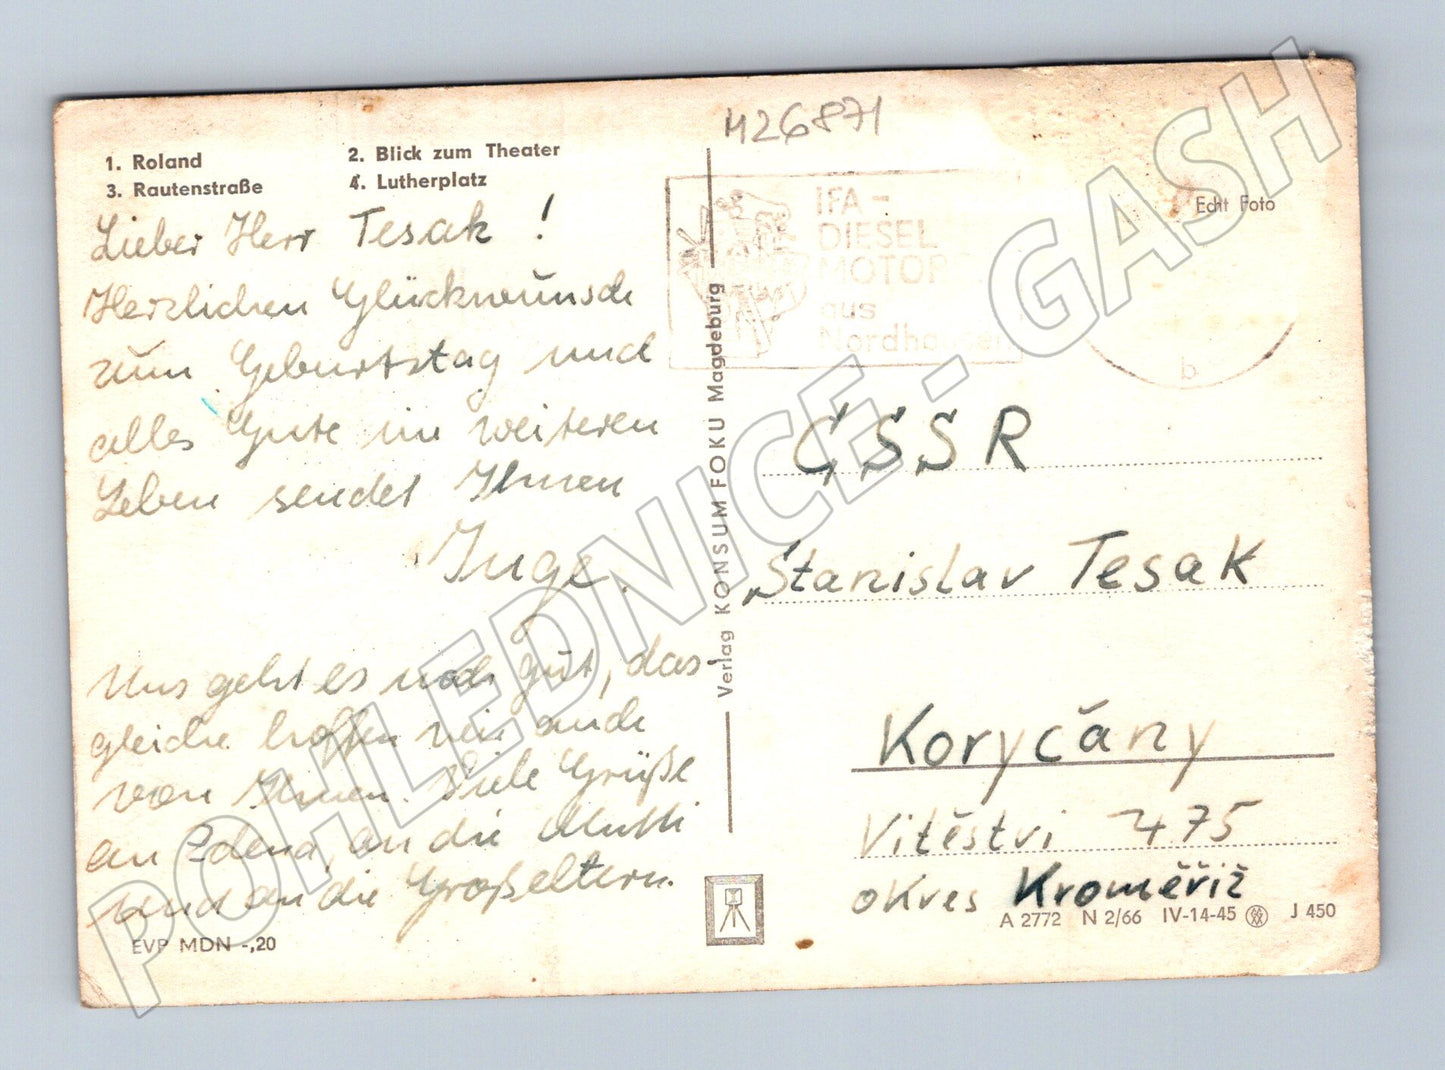 426871
1. Roland
2. Blick zum Theater
3. Rautenstraße
4. Lutherplatz
Lieber Herr Tesak !
Herzlichen Glückwunsch
zum Geburtstag und
alles Gute im weiteren
Leben sendet Ihnen
Inge.
Uns geht es noch gut, das-
gleiche hoffen wir auch
von Ihnen. Viele Grüße
an Zdena, an die Mutti
und an die Großeltern.
EVP MDN -,20
Verlag KONSUM FOKU Magdeburg
IFA -
DIESEL
MOTOR
aus
Nordhausen
b
Echt Foto
ČSSR
Stanislav Tesak
Koryčány
Vitěstvi 475
okres Kroměřiž
A 2772 N 2/66 IV-14-45 J 450
POHLEDNICE - GASH